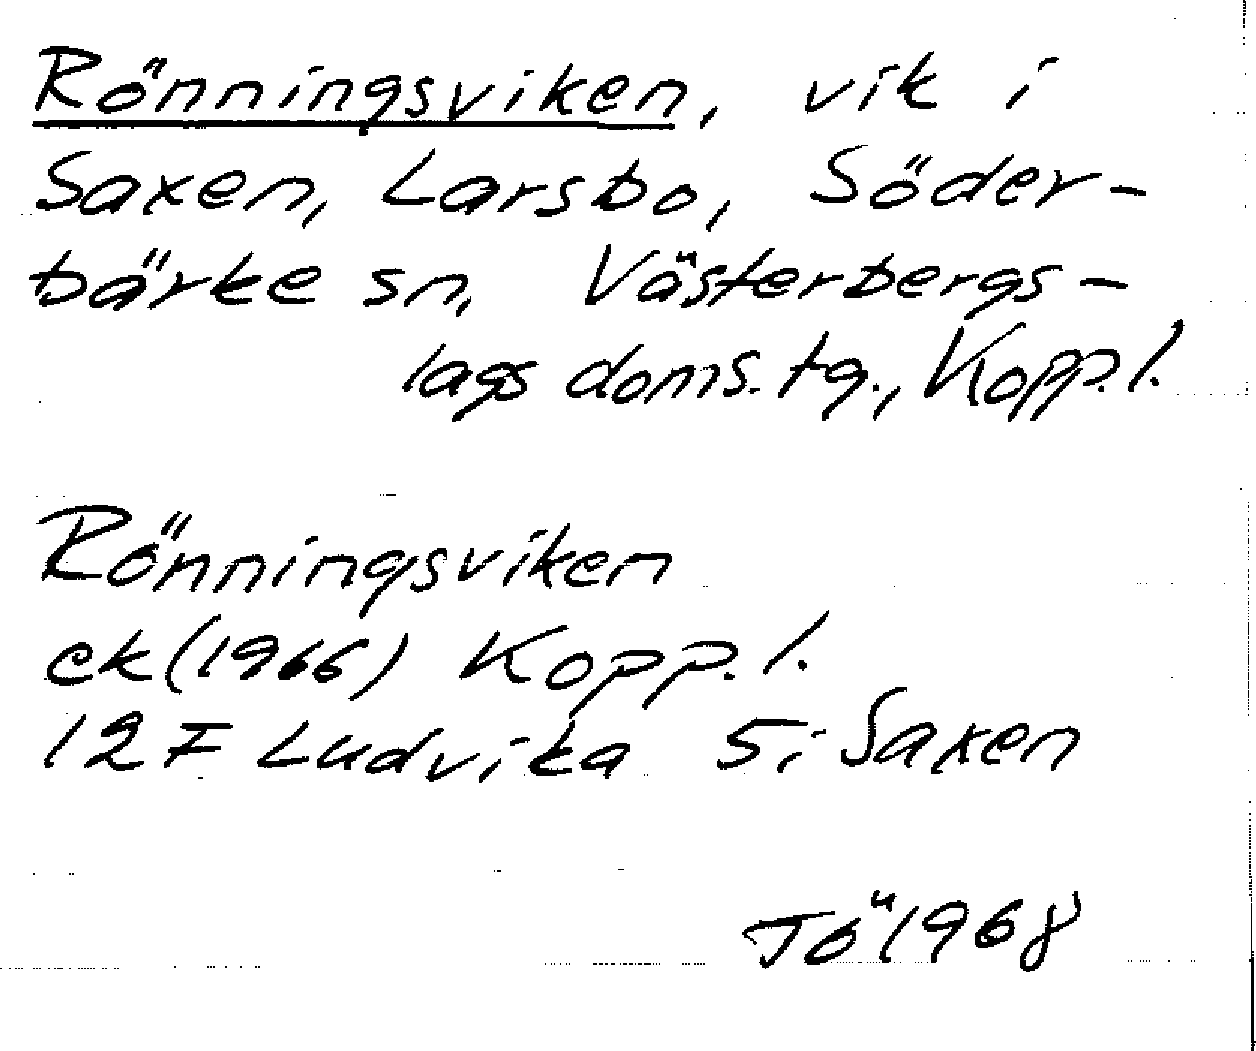 Rönningsviken, vik i
Saxen, Larsbo, Söder-
bärke sn, Västerbergs-
lags doms.tg., Kopp.l.
Rönningsviken
ek(1966) Kopp.l.
12F Ludvika S; Saxen
Tö 1968